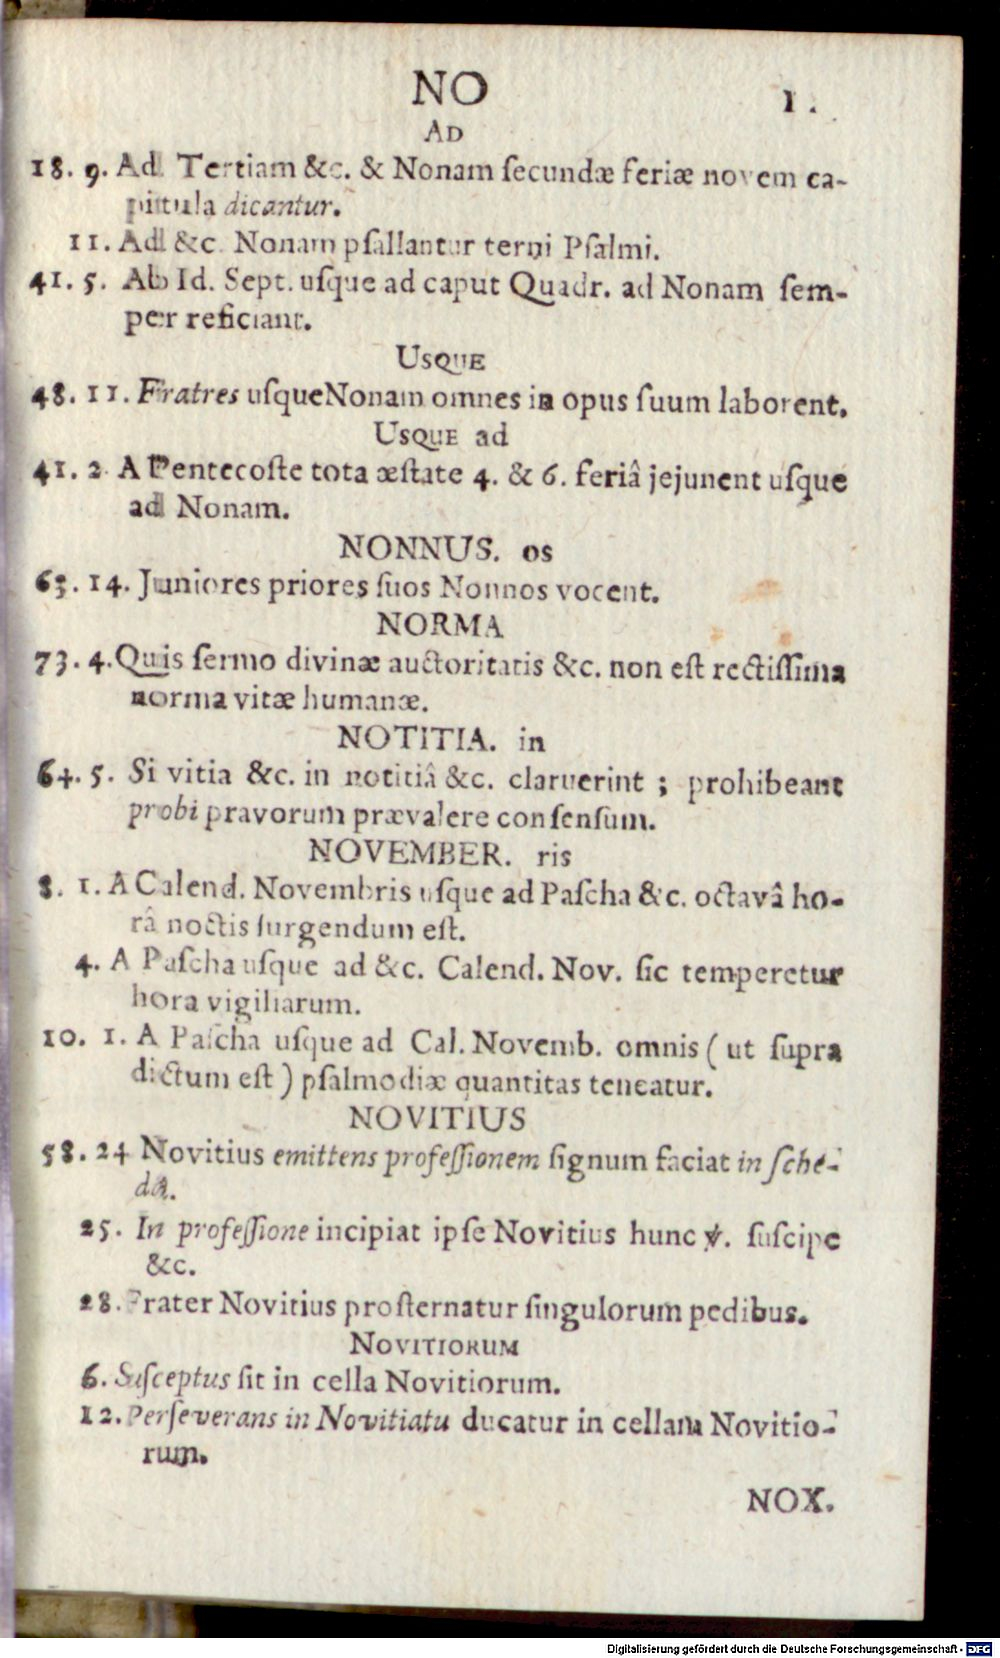 NO 1.
AD
18. 9. Ad Tertiam &c. & Nonam ſecundæ feriæ novem ca-
pittula dicantur.
11. Ad &c. Nonam pſallantur terni Pſalmi.
41. 5. Ab Id. Sept. uſque ad caput Quadr. ad Nonam ſem-
per reficiant.
USQUE
48. 11. Fratres uſque Nonam omnes in opus ſuum laborent.
USQUE ad
41. 2. A Pentecoſte tota æſtate 4. & 6. feriâ jejunent uſque
ad Nonam.
NONNUS. os
63. 14. Juniores priores ſuos Nonnos vocent.
NORMA
73. 4. Quis ſermo divinæ auctoritatis &c. non eſt rectiſſima
norma vitæ humanæ.
NOTITIA. in
64. 5. Si vitia &c. in notitiâ &c. claruerint ; prohibeant
probi pravorum prævalere conſenſum.
NOVEMBER. ris
8. 1. A Calend. Novembris uſque ad Paſcha &c. octavâ ho-
râ noctis ſurgendum eſt.
4. A Paſcha uſque ad &c. Calend. Nov. ſic temperetur
hora vigiliarum.
10. 1. A Paſcha uſque ad Cal. Novemb. omnis ( ut ſupra
dictum eſt ) pſalmodiæ quantitas teneatur.
NOVITIUS
58. 24 Novitius emittens profeſſionem ſignum faciat in ſche-
da.
25. In profeſſione incipiat ipſe Novitius hunc ℣. ſuſcipe
&c.
28. Frater Novitius proſternatur ſingulorum pedibus.
NOVITIORUM
6. Suſceptus ſit in cella Novitiorum.
12. Perſeverans in Novitiatu ducatur in cellam Novitio-
rum.
NOX.
Digitalisierung gefördert durch die Deutsche Forschungsgemeinschaft - DFG